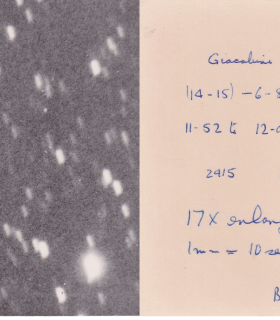 Giacobini
(14-15) -6-
11-52 to 12-
2415
17X enlar
1mm = 10 se